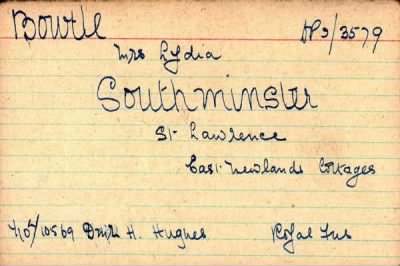 Bowtle DP3/3579
Mrs Lydia
Southminster
St Lawrence
East Newlands Cottages
H. Hughes Royal Fus